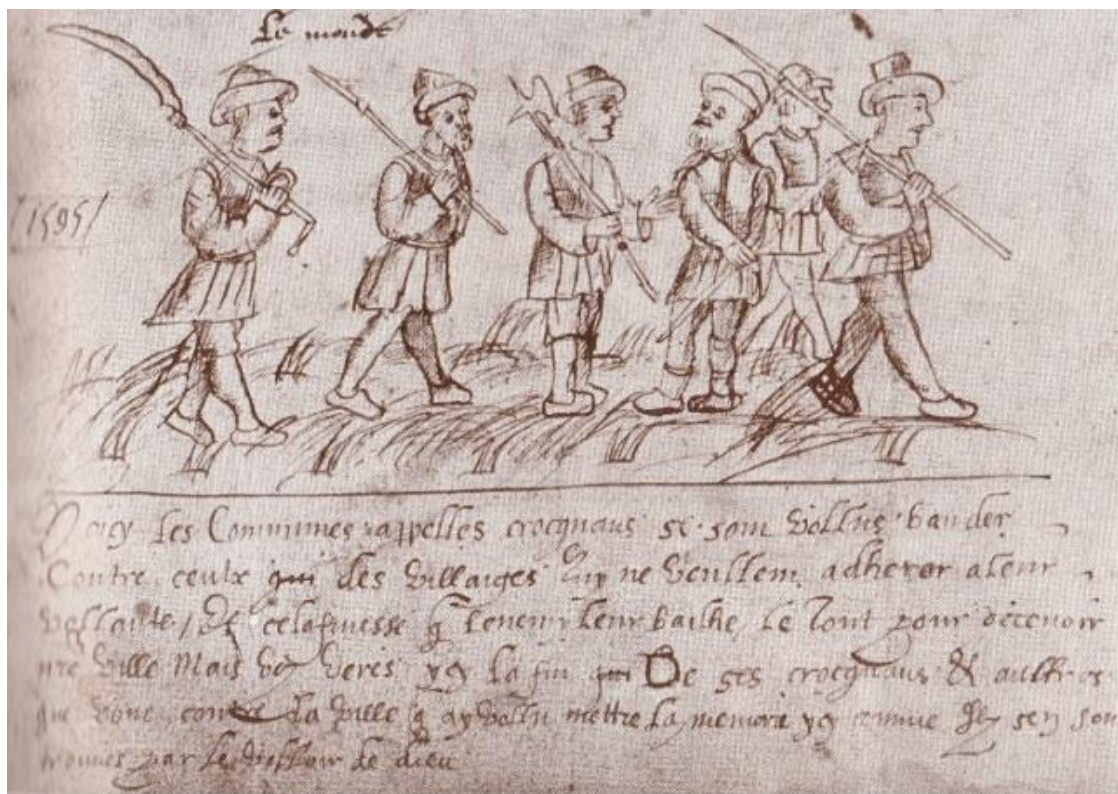 Le monde
1595
Voicy les Communes rappelles crocquaus se sont vollus bander
Contre ceulx qui des villaiges qui ne veullent adherer a leur
vollonte / Et cela finesse q lenemi leur bailhe le tout pour decevoir
nre ville Mais voy veres ycy la fin De ses crocquaus & aultres
que vont contre la ville q ay vollu mettre la memoire ycy comme Ilz sen sont
trouves par le voulloir de dieu